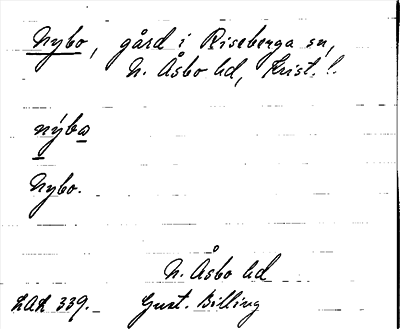 Nybo, gård i Riseberga sn,
N. Åsbo hd, Krist. l.
nýbo
Nybo.
N. Åsbo hd
LAL 339. Gust. Billing